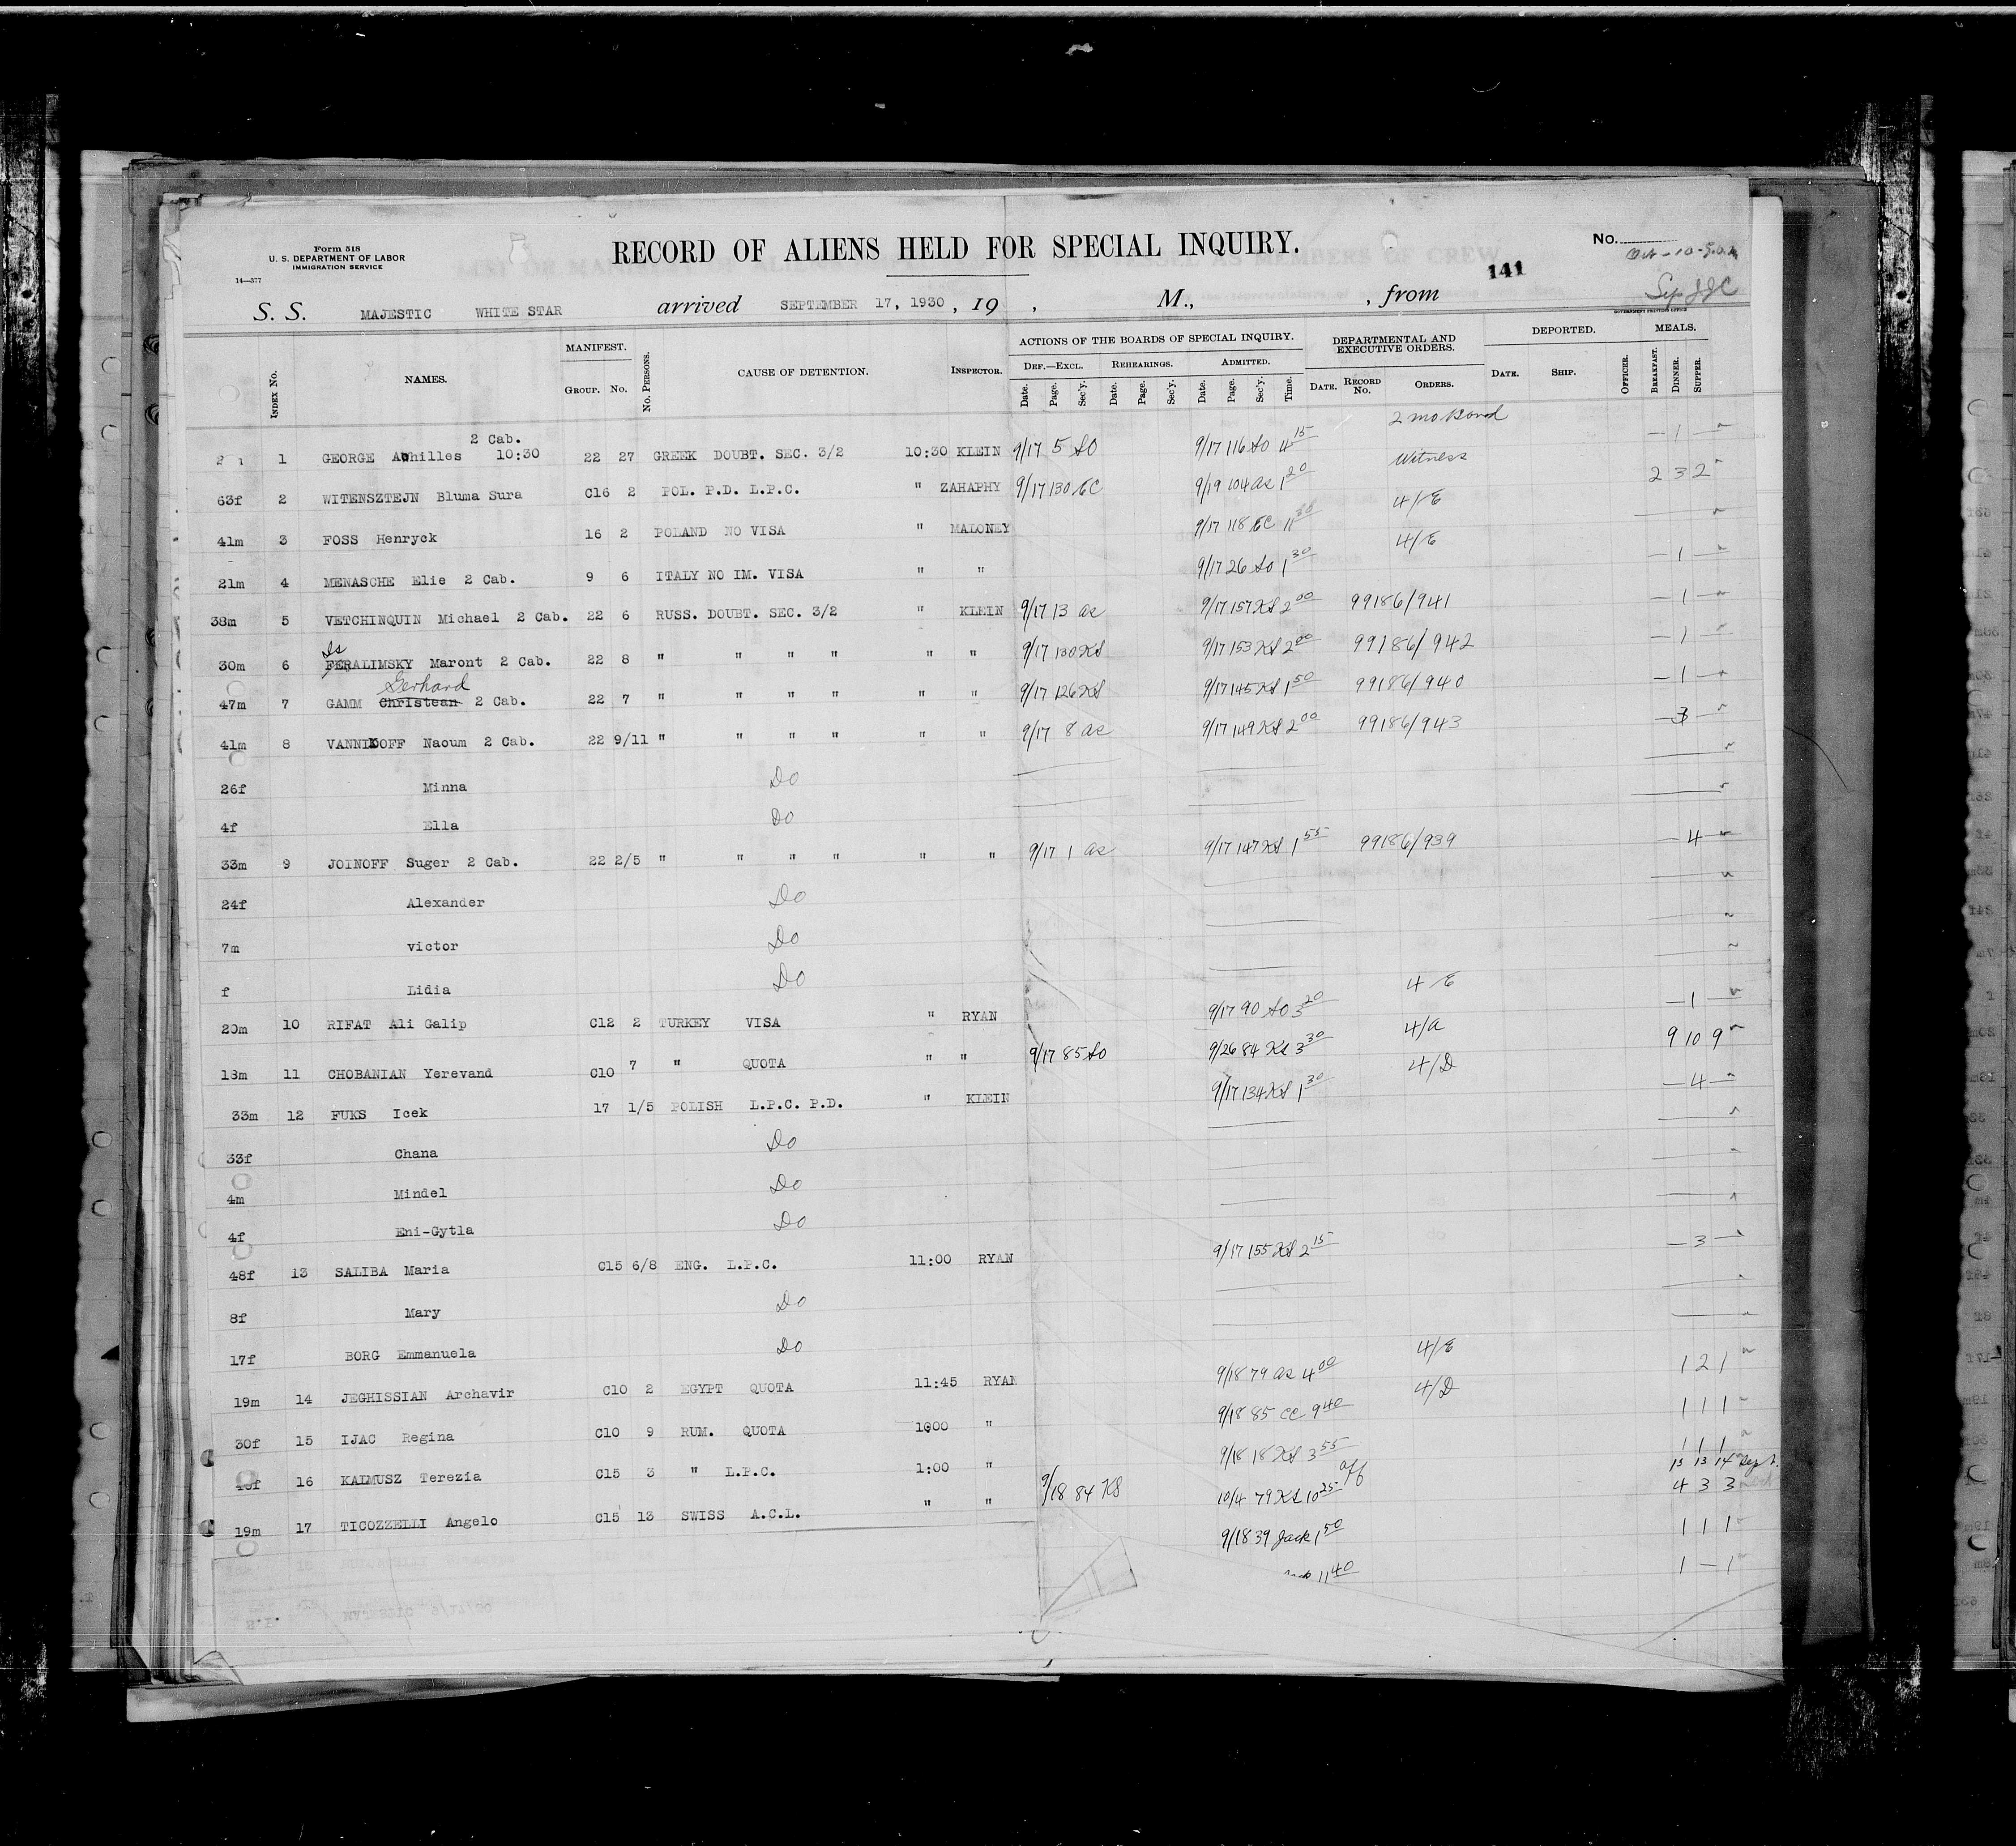 Form 518
U. S. DEPARTMENT OF LABOR
IMMIGRATION SERVICE
14—377
RECORD OF ALIENS HELD FOR SPECIAL INQUIRY.
No.
141
S. S. MAJESTIC WHITE STAR arrived SEPTEMBER 17, 1930, 19 , M., , from
GOVERNMENT PRINTING OFFICE
INDEX No. NAMES. MANIFEST. GROUP. No. No. PERSONS. CAUSE OF DETENTION. INSPECTOR. ACTIONS OF THE BOARDS OF SPECIAL INQUIRY. DEF.—EXCL. REHEARINGS. ADMITTED. DEPARTMENTAL AND EXECUTIVE ORDERS. DEPORTED. MEALS.
Date. Page. Sec'y. Date. Page. Sec'y. Date. Page. Sec'y. Time. DATE. RECORD No. ORDERS. DATE. SHIP. OFFICER. BREAKFAST. DINNER. SUPPER.
2 mo Bond
2 Cab.
1 GEORGE Achilles 10:30 22 27 GREEK DOUBT. SEC. 3/2 10:30 KLEIN 9/17 5 SO 9/17 116 SO 4 15 — 1 —
Witness
63f 2 WITENSZTEJN Bluma Sura C16 2 POL. P.D. L.P.C. " ZAHAPHY 9/17 130 EC 9/19 104 AC 1 20 2 3 2
4/E
41m 3 FOSS Henryck 16 2 POLAND NO VISA " MALONEY 9/17 118 EC 11 30
4/E
21m 4 MENASCHE Elie 2 Cab. 9 6 ITALY NO IM. VISA " " 9/17 26 SO 1 30 — 1 —
38m 5 VETCHINQUIN Michael 2 Cab. 22 6 RUSS. DOUBT. SEC. 3/2 " KLEIN 9/17 13 AC 9/17 157 KS 2 00 99186/941 — 1 —
Is
30m 6 FERALIMSKY Maront 2 Cab. 22 8 " " " " " " 9/17 130 KS 9/17 153 KS 2 00 99186/942 — 1 —
Gerhard
47m 7 GAMM Christean 2 Cab. 22 7 " " " " " " 9/17 126 KS 9/17 145 KS 1 50 99186/940 — 1 —
41m 8 VANNIKOFF Naoum 2 Cab. 22 9/11 " " " " " " 9/17 8 AC 9/17 149 KS 2 00 99186/943 — 3 —
26f Minna Do
4f Ella Do
33m 9 JOINOFF Suger 2 Cab. 22 2/5 " " " " " " 9/17 1 AC 9/17 147 KS 1 55 99186/939 — 4 —
24f Alexander Do
7m victor Do
f Lidia Do
4/E
20m 10 RIFAT Ali Galip C12 2 TURKEY VISA " RYAN 9/17 90 SO 3 20 — 1 —
4/A
18m 11 CHOBANIAN Yerevand C10 7 " QUOTA " " 9/17 85 SO 9/26 84 KS 3 30 9 10 9
4/D
33m 12 FUKS Icek 17 1/5 POLISH L.P.C. P.D. " KLEIN 9/17 134 KS 1 30 — 4 —
33f Chana Do
4m Mindel Do
4f Eni-Gytla Do
48f 13 SALIBA Maria C15 6/8 ENG. L.P.C. 11:00 RYAN 9/17 155 KS 2 15 — 3 —
8f Mary Do
17f BORG Emmanuela Do
4/E
19m 14 JEGHISSIAN Archavir C10 2 EGYPT QUOTA 11:45 RYAN 9/18 79 AC 4 00 1 2 1
4/D
30f 15 IJAC Regina C10 9 RUM. QUOTA 1:00 " 9/18 85 CC 9 40 1 1 1
16 KALMUSZ Terezia C15 3 " L.P.C. 1:00 " 9/18 84 KS 9/18 18 KS 3 55 1 1 1
13 13 14 Sept.
10/4 79 KS 10 25 4 3 3
19m 17 TICOZZELLI Angelo C15 13 SWISS A.C.L. " " 9/18 39 Jack 1 50 1 1 1
11 40 1 — 1